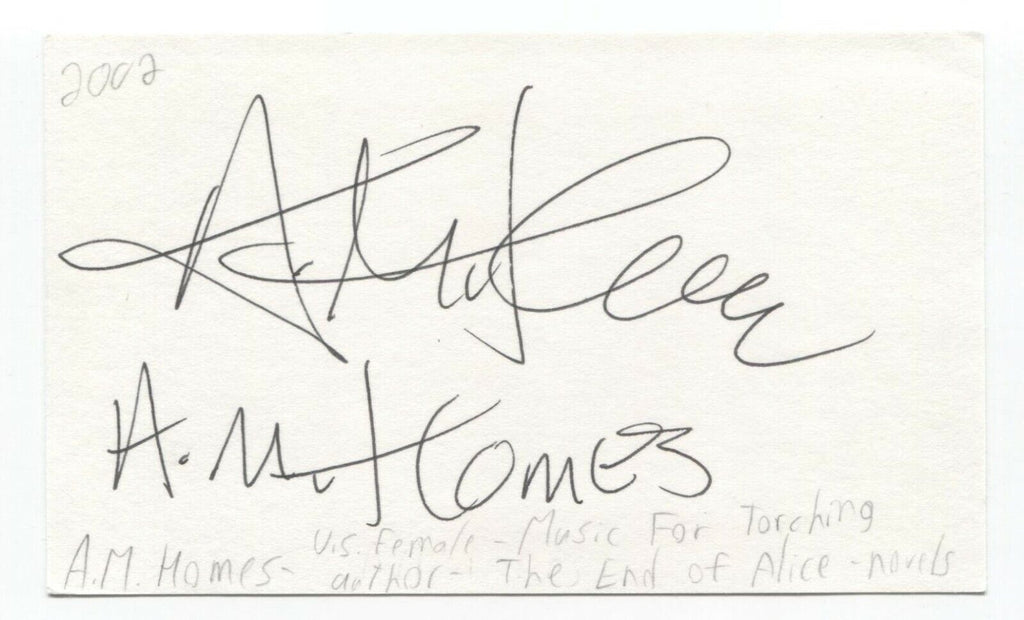 2002
A.M. Homes
U.S. female - Music For Torching
A.M. Homes - author - The End of Alice - novels